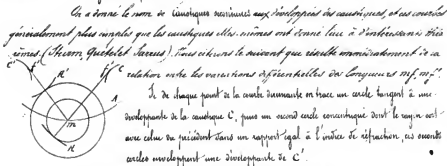 On a donné le nom de caustiques secondaires aux développées des caustiques, et ces courbes
généralement plus simples que les caustiques elles-mêmes ont donné lieu à d'intéressants théo-
rèmes. (Sturm, Quetelet, Sarrus). Nous citerons le suivant que résulte immédiatement de la
relation entre les variations différentielles des longueurs mf, mf'.
Si de chaque point de la courbe dirimante on trace un cercle tangent à une
développante de la caustique C, puis un second cercle concentrique dont le rayon soit
avec celui du précédent dans un rapport égal à l'indice de réfraction, ces seconds
cercles enveloppent une développante de C'.
C'
R'
C
A
m
R